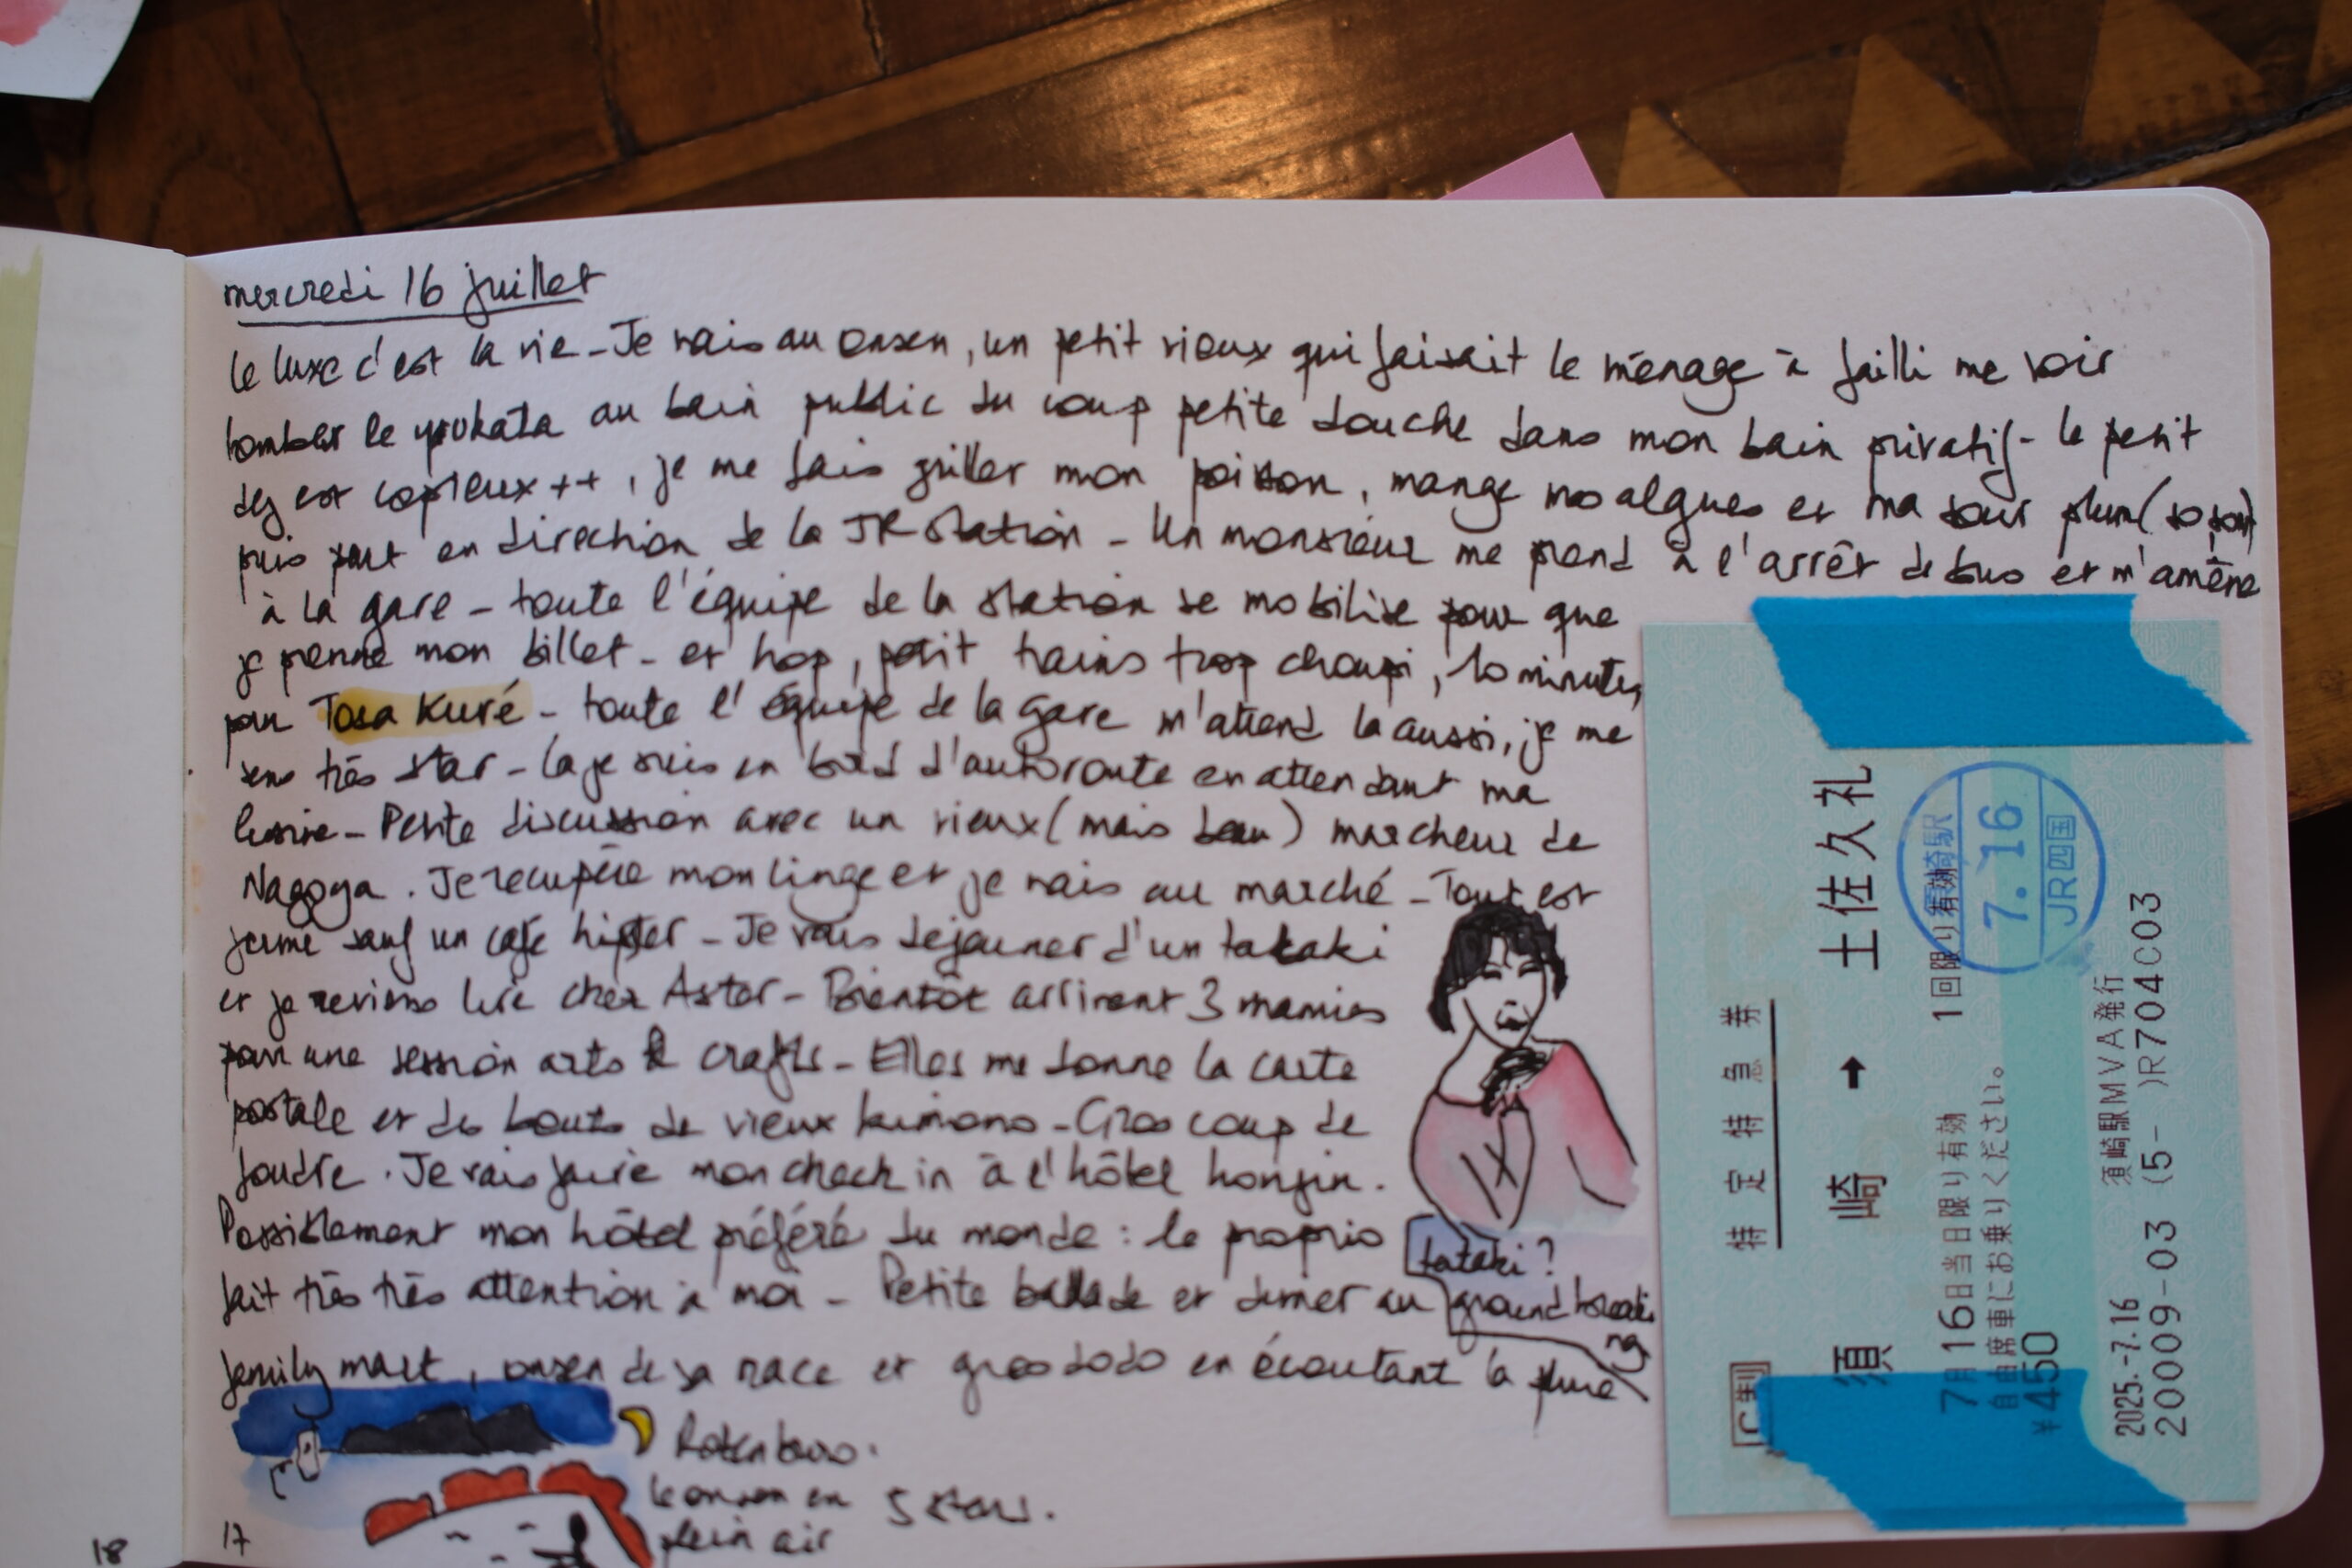 mercredi 16 juillet
le luxe c'est la vie - Je vais au onsen, un petit vieux qui faisait le ménage à failli me voir
tomber le youkata au bain public du coup petite douche dans mon bain privatif - le petit
dej est copieux ++, je me fais griller mon poisson, mange mes algues et ma sour plum
puis part en direction de la JR station - Un monsieur me prend à l'arrêt de bus et m'amène
à la gare - toute l'équipe de la station se mobilise pour que
je prenne mon billet - et hop, petit trains trop choupi, 10 minutes,
pour Tosa Kuré - toute l'équipe de la gare m'attend la aussi, je me
sens très star - la je suis en bord d'autoroute en attendant ma
lessive - Petite discussion avec un vieux (mais beau) marcheur de
Nagoya. Je recupère mon linge et je vais au marché - Tout est
fermé sauf un café hipster - Je vais dejeuner d'un tataki
et je reviens lire chez Astar - Bientôt arrivent 3 mamies
pour une session arts & crafts - Elles me donne la carte
postale et des bouts de vieux kimono - Gros coup de
foudre. Je vais faire mon check in à l'hôtel honjin.
Possiblement mon hôtel préféré du monde : le proprio
fait très très attention à moi - Petite ballade et diner au
family mart, onsen de sa race et gros dodo en écoutant la pluie
tataki?
ground breaki
ng
Rotenburo.
le onsen en
plein air
5 stars.
17
18
C制
特定特急券
須崎 → 土佐久礼
7月16日当日限り有効 1回限り有効
自由席車にお乗りください。
¥450
2025.-7.16 須崎駅MVA発行
20009-03 (5- )R704C03
須崎駅
7.16
JR四国